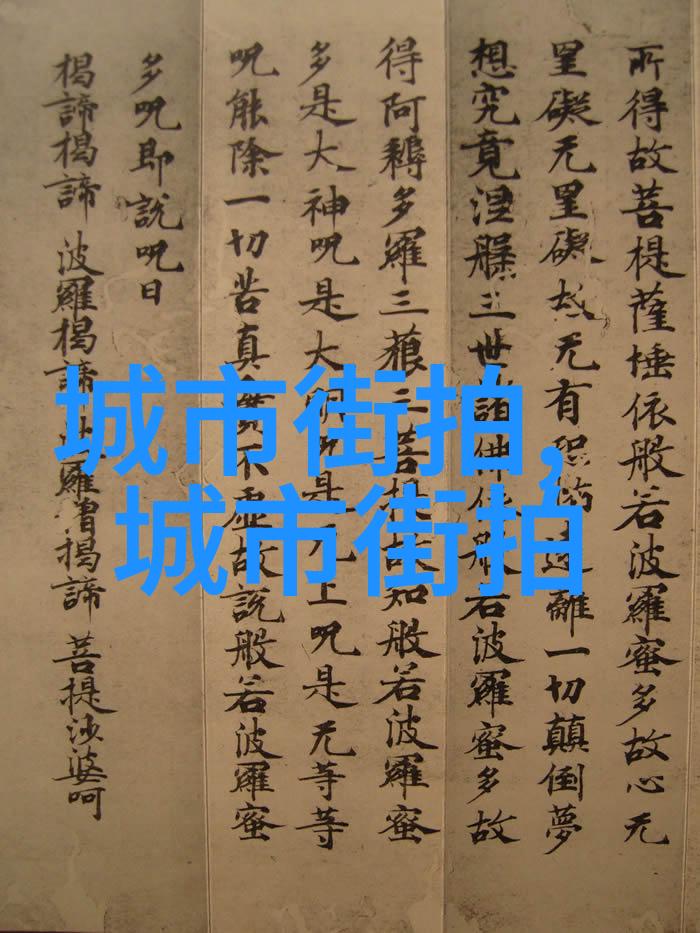 所得故菩提薩埵依般若波羅蜜多故心无
罣礙无罣礙故无有恐怖遠離一切顛倒夢
想究竟涅槃三世諸佛依般若波羅蜜多故
得阿耨多羅三藐三菩提故知般若波羅蜜
多是大神呪是大明呪是无上呪是无等等
呪能除一切苦真實不虛故說般若波羅蜜
多呪即說呪曰
揭諦揭諦 波羅揭諦 波羅僧揭諦 菩提沙婆呵
城市街拍,
城市街拍